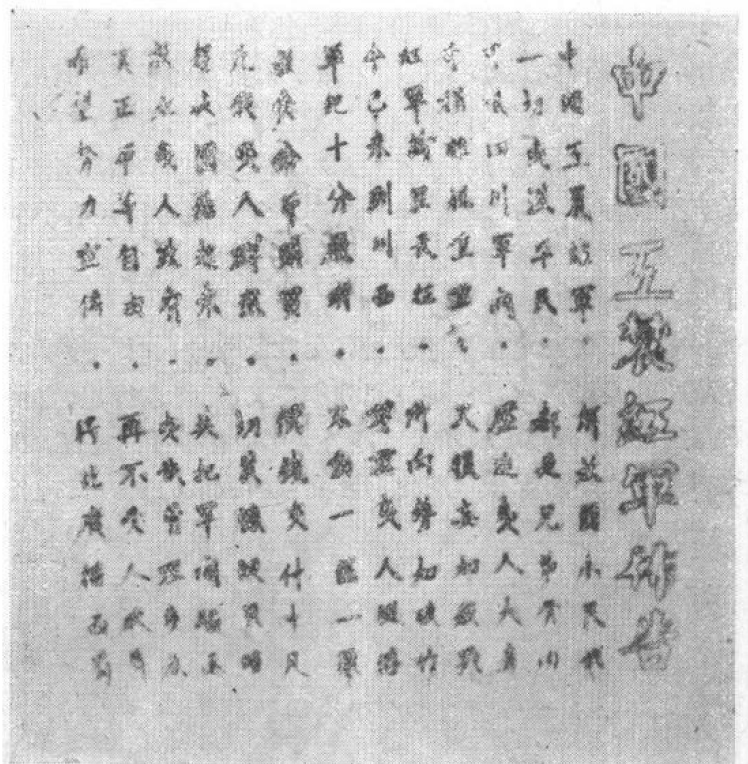 中國工農紅軍佈告
中國工農紅軍·解放弱小民族
一切夷漢平民·都是兄弟骨肉
可恨四川軍閥·壓迫夷人太毒
苛捐雜稅重重·又復妄加殺戮
紅軍萬里長征·所向勢如破竹
今已來到川西·尊重夷人風俗
軍紀十分嚴明·不動一絲一粟
糧食公平購買·價錢交付十足
凡我夷人群衆·切莫懷疑畏縮
趕快團結起來·共把軍閥驅逐
設立夷人政府·夷族管理夷族
真正平等自由·再不受人欺辱
希望努力宣傳·將此廣播西蜀